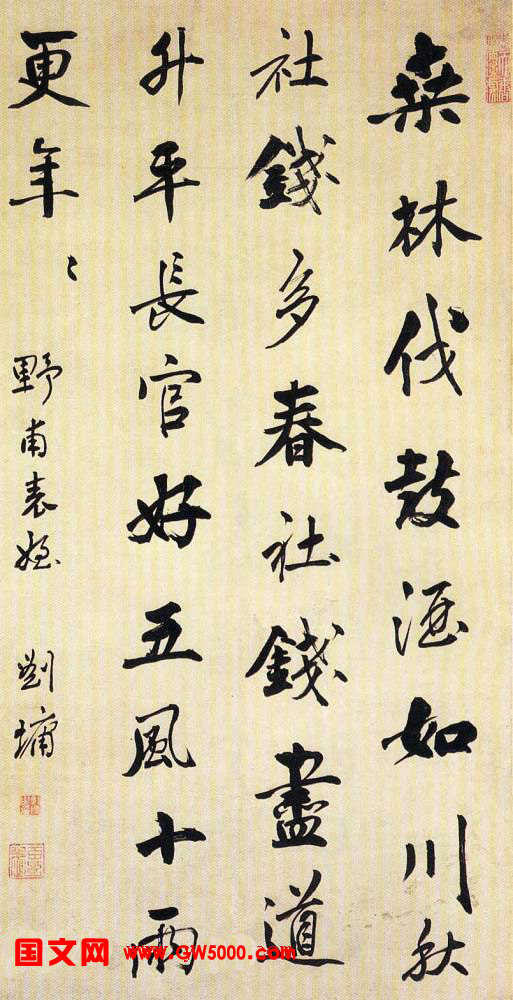 桒林伐鼓酒如川秋
社錢多春社錢盡道
升平長官好五風十雨
更年〻
野甫表姪 劉墉
国文网 www.GW5000.com